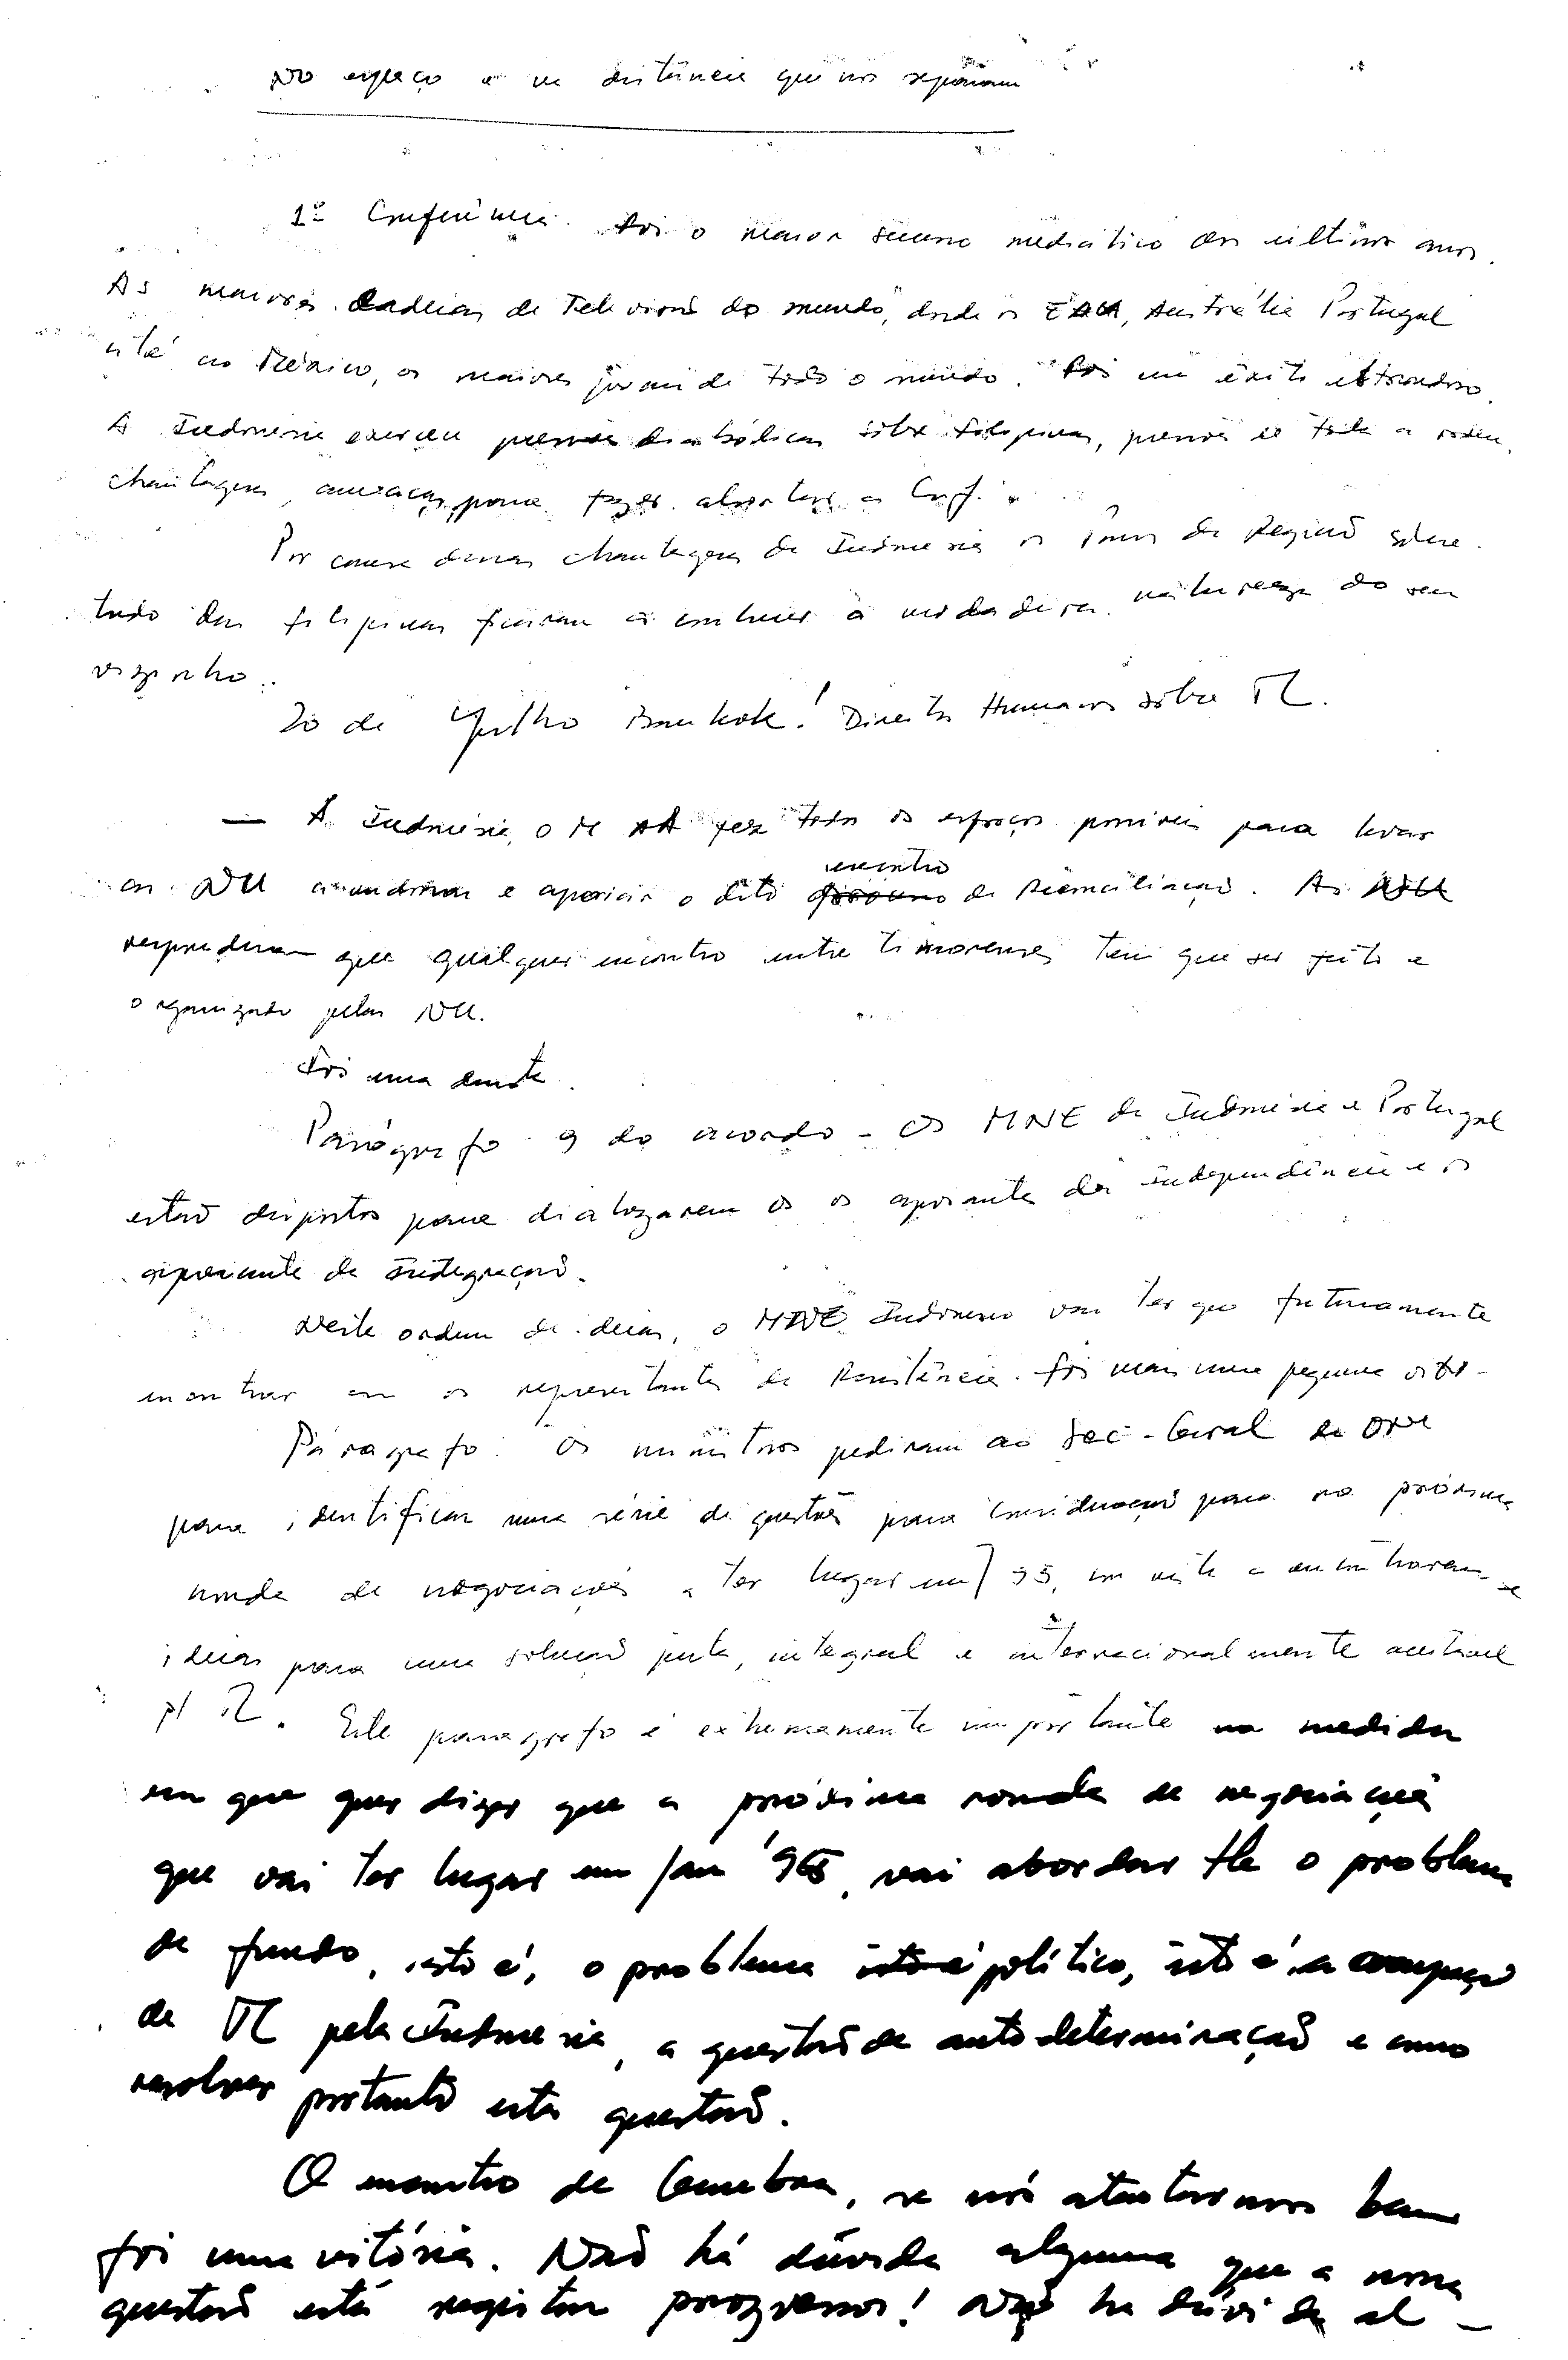 No espaço e na distância que nos separam
1º Conferência. Foi o maior sucesso mediático dos últimos anos.
As maiores cadeias de Televisão do mundo, desde os EUA, Austrália Portugal
até ao México, os maiores jornais de todo o mundo. Foi um êxito estrondoso.
A Indonésia exerceu pressões diabólicas sobre Filipinas, pressões de toda a ordem,
chantagens, ameaças, para fazer abortar a Conf.
Por causa dessas chantagens da Indonésia os Povos da Região sobre-
tudo das Filipinas ficaram a conhecer a verdadeira natureza do seu
vizinho.
20 de Julho Bankok! Direitos Humanos sobre TL.
— A Indonésia, o M AA fez todos os esforços possíveis para levar
as NU a e apoiar o dito encontro de Reconciliação. As NU
responderam que qualquer encontro entre timorenses tem que ser feito e
organizado pelas NU.
Foi uma derrota.
Parágrafo 9 do acordo - Os MNE da Indonésia e Portugal
estão dispostos para dialogarem os os apoiantes da independência e os
apoiantes da Integração.
Neste ordem de ideias, o MNE Indonésio vai ter que futuramente
encontrar com os representantes da Resistência. Foi mais uma pequena vitó-
Parágrafo. Os ministros pediram ao Sec-Geral da ONU
para identificar uma série de questões para consideração para na próxima
ronda de negociações a ter lugar em J 95, em vista a encontrarem-se
ideias para uma solução justa, integral e internacionalmente aceitável
p/ TL. Este paragrafo é extremamente importante na medida
em que quer dizer que a próxima ronda de negociações
que vai ter lugar em Jan '95, vai abordar o problema
de fundo, isto é, o problema isto é político, isto é a ocupação
de TL pela Indonésia, a questão de autodeterminação e como
resolver portanto esta questão.
O encontro de Genebra, se nós atentarmos bem
foi uma vitória. Não há dúvida alguma que a nossa
questão está registar progressos! Não ha dúvida al-